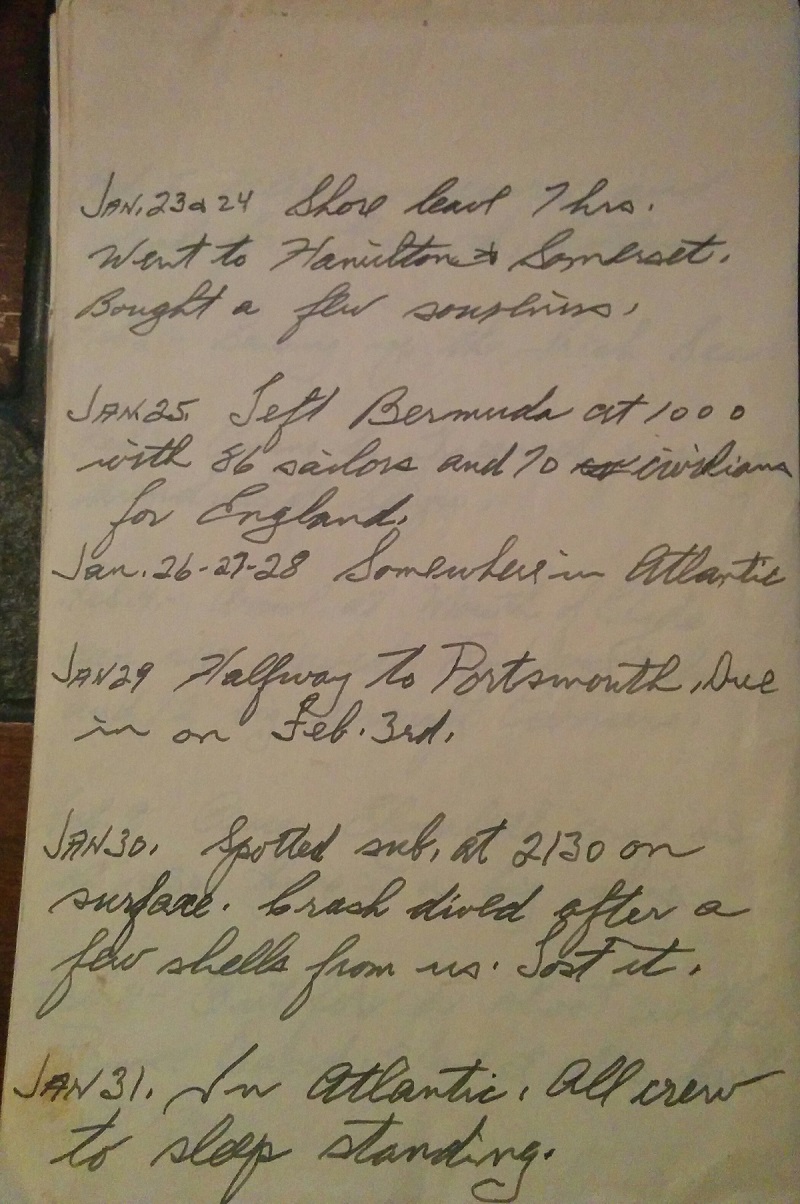 JAN. 23 & 24 Shore leave 7 hrs.
Went to Hamilton & Somerset.
Bought a few souvenirs.
JAN. 25 Left Bermuda at 1000
with 86 sailors and 70 civilians
for England.
Jan. 26-27-28 Somewhere in Atlantic
JAN 29 Halfway to Portsmouth, Due
in on Feb. 3rd.
JAN 30. Spotted sub. at 2130 on
surface. Crash dived after a
few shells from us. Lost it.
JAN 31. In Atlantic. All crew
to sleep standing.